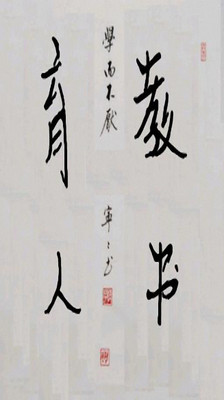 教书
育人
學而不厭